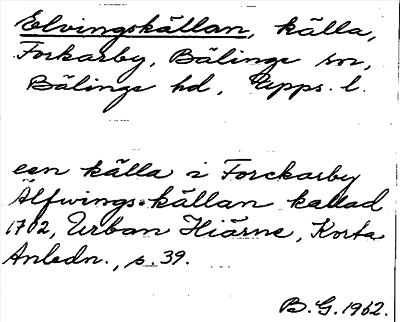 Elvingskällan, källa,
Forkarby, Bälinge sn,
Bälinge hd, Upps. l.
een källa i Forckarby
Älfwings-källan kallad
1702, Urban Hiärne, Korta
Anledn., s. 39.
B.G. 1962.